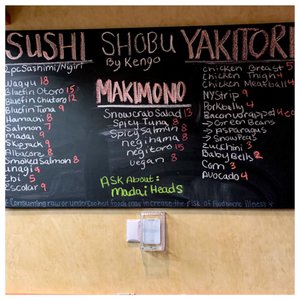 SUSHI
2pc Sashimi/Nigiri
Wagyu 18
Bluefin Otoro 15
Bluefin Chutoro 12
Bluefin Tuna 9
Hamachi 8
Salmon 7
Madai 9
Skipjack 9
Albacore 8
Smoked Salmon 8
Unagi 9
Ebi 5
Escolar 9
SHOBU
By Kengo
MAKIMONO
Snowcrab Salad 13
Spicy Tuna 8
Spicy Salmon 8
negihama 8
negitoro 15
vegan 8
ASK About:
Madai Heads
YAKITORI
Chicken Breast 5
Chicken Thigh 4
Chicken Meatball 4
NY Strip 9
Porkbelly 4
Bacon wrapped
→ Green Beans
→ Asparagus
→ Snowpeas
Zucchini 3
Baby Bells 2
Corn 3
Avocado 4
Consuming raw or undercooked foods may increase the risk of foodborne illness